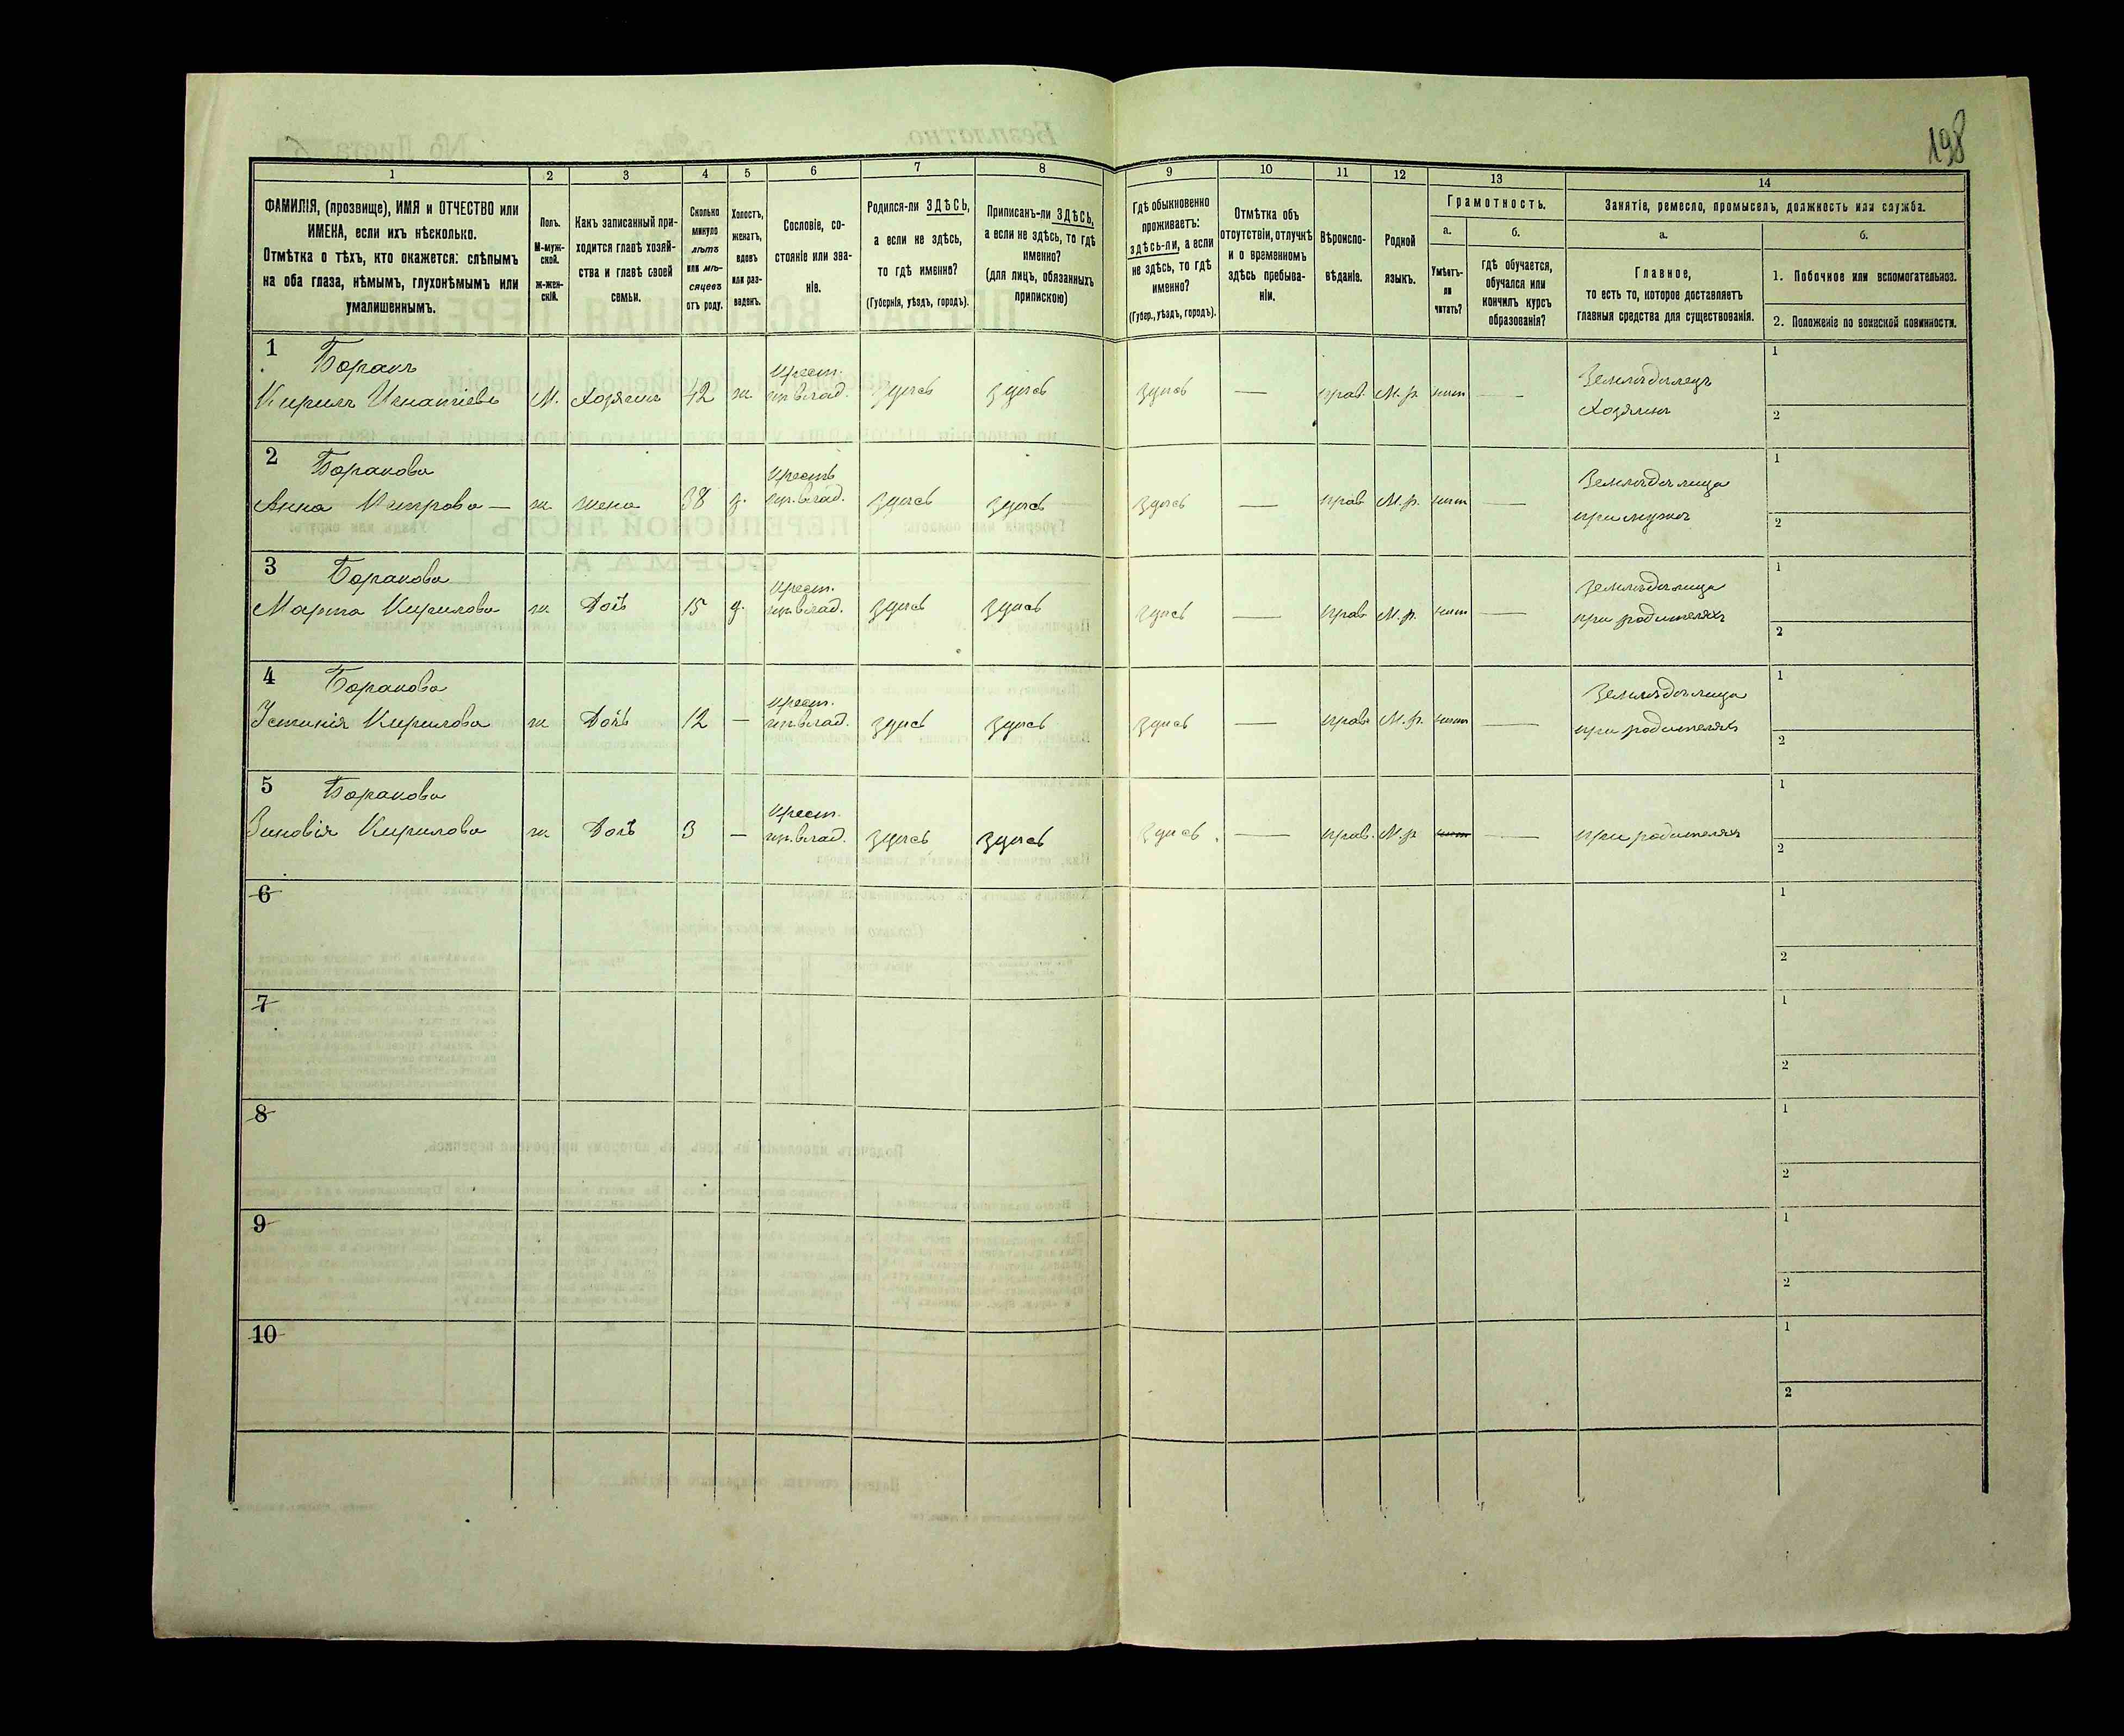 198
1 2 3 4 5 6 7 8 9 10 11 12 13 14
ФАМИЛІЯ, (прозвище), ИМЯ и ОТЧЕСТВО или
ИМЕНА, если ихъ нѣсколько.
Отмѣтка о тѣхъ, кто окажется: слѣпымъ
на оба глаза, нѣмымъ, глухонѣмымъ или
умалишеннымъ.
Полъ.
М-муж-
ской.
Ж-жен-
скій.
Какъ записанный при-
ходится главѣ хозяй-
ства и главѣ своей
семьи.
Сколько
минуло
лѣтъ
или мѣ-
сяцевъ
отъ роду.
Холостъ,
женатъ,
вдовъ
или раз-
веденъ.
Сословіе, со-
стояніе или зва-
ніе.
Родился-ли ЗДѢСЬ,
а если не здѣсь,
то гдѣ именно?
(Губернія, уѣздъ, городъ).
Приписанъ-ли ЗДѢСЬ,
а если не здѣсь, то гдѣ
именно?
(для лицъ, обязанныхъ
припискою)
Гдѣ обыкновенно
проживаетъ:
здѣсь-ли, а если
не здѣсь, то гдѣ
именно?
(Губер., уѣздъ, городъ).
Отмѣтка объ
отсутствіи, отлучкѣ
и о временномъ
здѣсь пребыва-
ніи.
Вѣроиспо-
вѣданіе.
Родной
языкъ.
Грамотность.
а.
Умѣетъ-
ли
читать?
б.
гдѣ обучается,
обучался или
кончилъ курсъ
образованія?
Занятіе, ремесло, промыселъ, должность или служба.
а.
Главное,
то есть то, которое доставляетъ
главныя средства для существованія.
б.
1. Побочное или вспомогательное.
2. Положеніе по воинской повинности.
1 Боракъ Крест. Земледѣлецъ 1
Кирилъ Игнатіевъ М. Хозяинъ 42 ж. здѣсь здѣсь здѣсь — прав. М.р. нѣтъ — Хозяинъ 2
2 Боракова Крестъ Земледѣлица 1
Анна Петрова — ж жена 38 з. здѣсь здѣсь здѣсь — прав М.р. нѣтъ — при мужѣ 2
3 Боракова Крест. Земледѣлица 1
Марта Кирилова ж Дочь 15 д. здѣсь здѣсь здѣсь — прав М.р. нѣтъ — при родителяхъ 2
4 Боракова Крест. Земледѣлица 1
Устинія Кирилова ж Дочь 12 — здѣсь здѣсь здѣсь — прав М.р. нѣтъ — при родителяхъ 2
5 Боракова Крест. 1
Зиновія Кирилова ж Дочь 3 — здѣсь здѣсь здѣсь. — прав. М.р — при родителяхъ 2
6 1
2
7 1
2
8 1
2
9 1
2
10 1
2